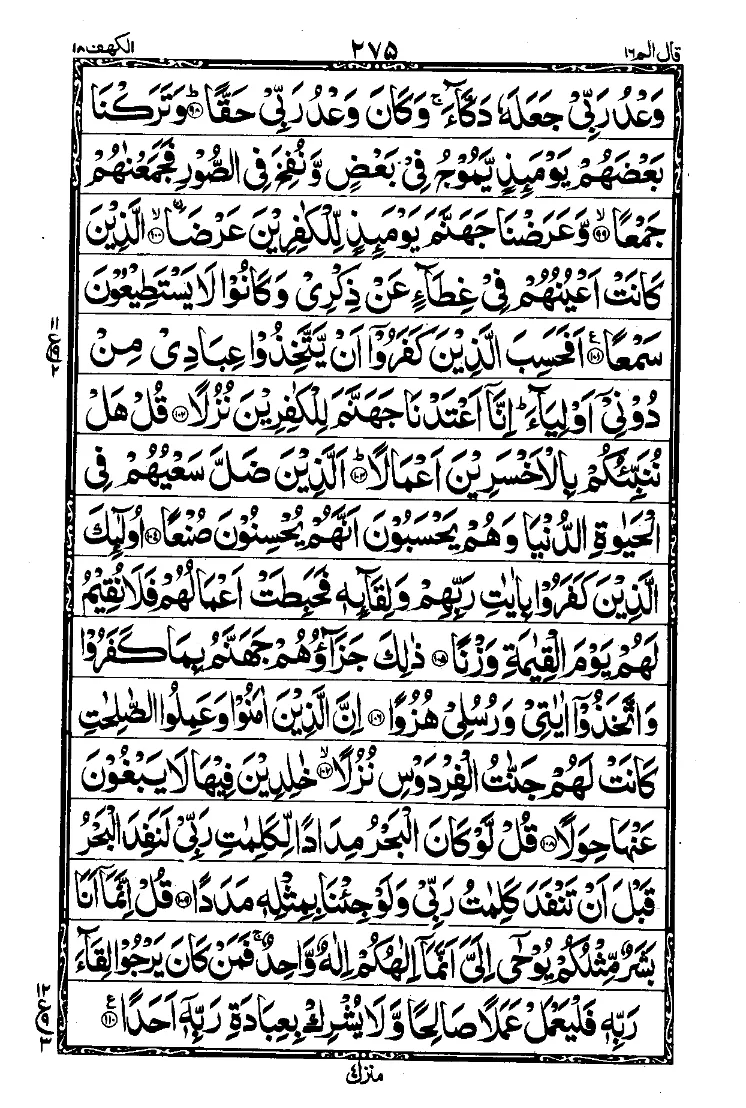 قال الم ١٦
٢٧٥
الكهف ١٨
وَعْدُ رَبِّىْ جَعَلَهٗ دَكَّآءَ ۚ وَكَانَ وَعْدُ رَبِّىْ حَقًّا ؕ﴿۹۸﴾ وَتَرَكْنَا
بَعْضَهُمْ يَوْمَئِذٍ يَّمُوْجُ فِىْ بَعْضٍ وَّنُفِخَ فِى الصُّوْرِ فَجَمَعْنٰهُمْ
جَمْعًا ۙ﴿۹۹﴾ وَّعَرَضْنَا جَهَنَّمَ يَوْمَئِذٍ لِّلْكٰفِرِيْنَ عَرْضَا ۙ﴿۱۰۰﴾ الَّذِيْنَ
كَانَتْ اَعْيُنُهُمْ فِىْ غِطَآءٍ عَنْ ذِكْرِىْ وَكَانُوْا لَا يَسْتَطِيْعُوْنَ
سَمْعًا ﴿۱۰۱﴾ ع اَفَحَسِبَ الَّذِيْنَ كَفَرُوْۤا اَنْ يَّتَّخِذُوْا عِبَادِىْ مِنْ
دُوْنِىْۤ اَوْلِيَآءَ ؕ اِنَّاۤ اَعْتَدْنَا جَهَنَّمَ لِلْكٰفِرِيْنَ نُزُلًا ﴿۱۰۲﴾ قُلْ هَلْ
نُنَبِّئُكُمْ بِالْاَخْسَرِيْنَ اَعْمَالًا ؕ﴿۱۰۳﴾ اَلَّذِيْنَ ضَلَّ سَعْيُهُمْ فِى
الْحَيٰوةِ الدُّنْيَا وَهُمْ يَحْسَبُوْنَ اَنَّهُمْ يُحْسِنُوْنَ صُنْعًا ﴿۱۰۴﴾ اُولٰٓئِكَ
الَّذِيْنَ كَفَرُوْا بِاٰيٰتِ رَبِّهِمْ وَلِقَآئِهٖ فَحَبِطَتْ اَعْمَالُهُمْ فَلَا نُقِيْمُ
لَهُمْ يَوْمَ الْقِيٰمَةِ وَزْنًا ﴿۱۰۵﴾ ذٰلِكَ جَزَآؤُهُمْ جَهَنَّمُ بِمَا كَفَرُوْا
وَاتَّخَذُوْۤا اٰيٰتِىْ وَرُسُلِىْ هُزُوًا ﴿۱۰۶﴾ اِنَّ الَّذِيْنَ اٰمَنُوْا وَعَمِلُوا الصّٰلِحٰتِ
كَانَتْ لَهُمْ جَنّٰتُ الْفِرْدَوْسِ نُزُلًا ۙ﴿۱۰۷﴾ خٰلِدِيْنَ فِيْهَا لَا يَبْغُوْنَ
عَنْهَا حِوَلًا ﴿۱۰۸﴾ قُلْ لَّوْ كَانَ الْبَحْرُ مِدَادًا لِّكَلِمٰتِ رَبِّىْ لَنَفِدَ الْبَحْرُ
قَبْلَ اَنْ تَنْفَدَ كَلِمٰتُ رَبِّىْ وَلَوْ جِئْنَا بِمِثْلِهٖ مَدَدًا ﴿۱۰۹﴾ قُلْ اِنَّمَاۤ اَنَا
بَشَرٌ مِّثْلُكُمْ يُوْحٰۤى اِلَىَّ اَنَّمَاۤ اِلٰهُكُمْ اِلٰهٌ وَّاحِدٌ ۚ فَمَنْ كَانَ يَرْجُوْا لِقَآءَ
رَبِّهٖ فَلْيَعْمَلْ عَمَلًا صَالِحًا وَّلَا يُشْرِكْ بِعِبَادَةِ رَبِّهٖۤ اَحَدًا ﴿۱۱۰﴾ ع
١١ ع ٢
١٢ ع ٣
منزل ٤